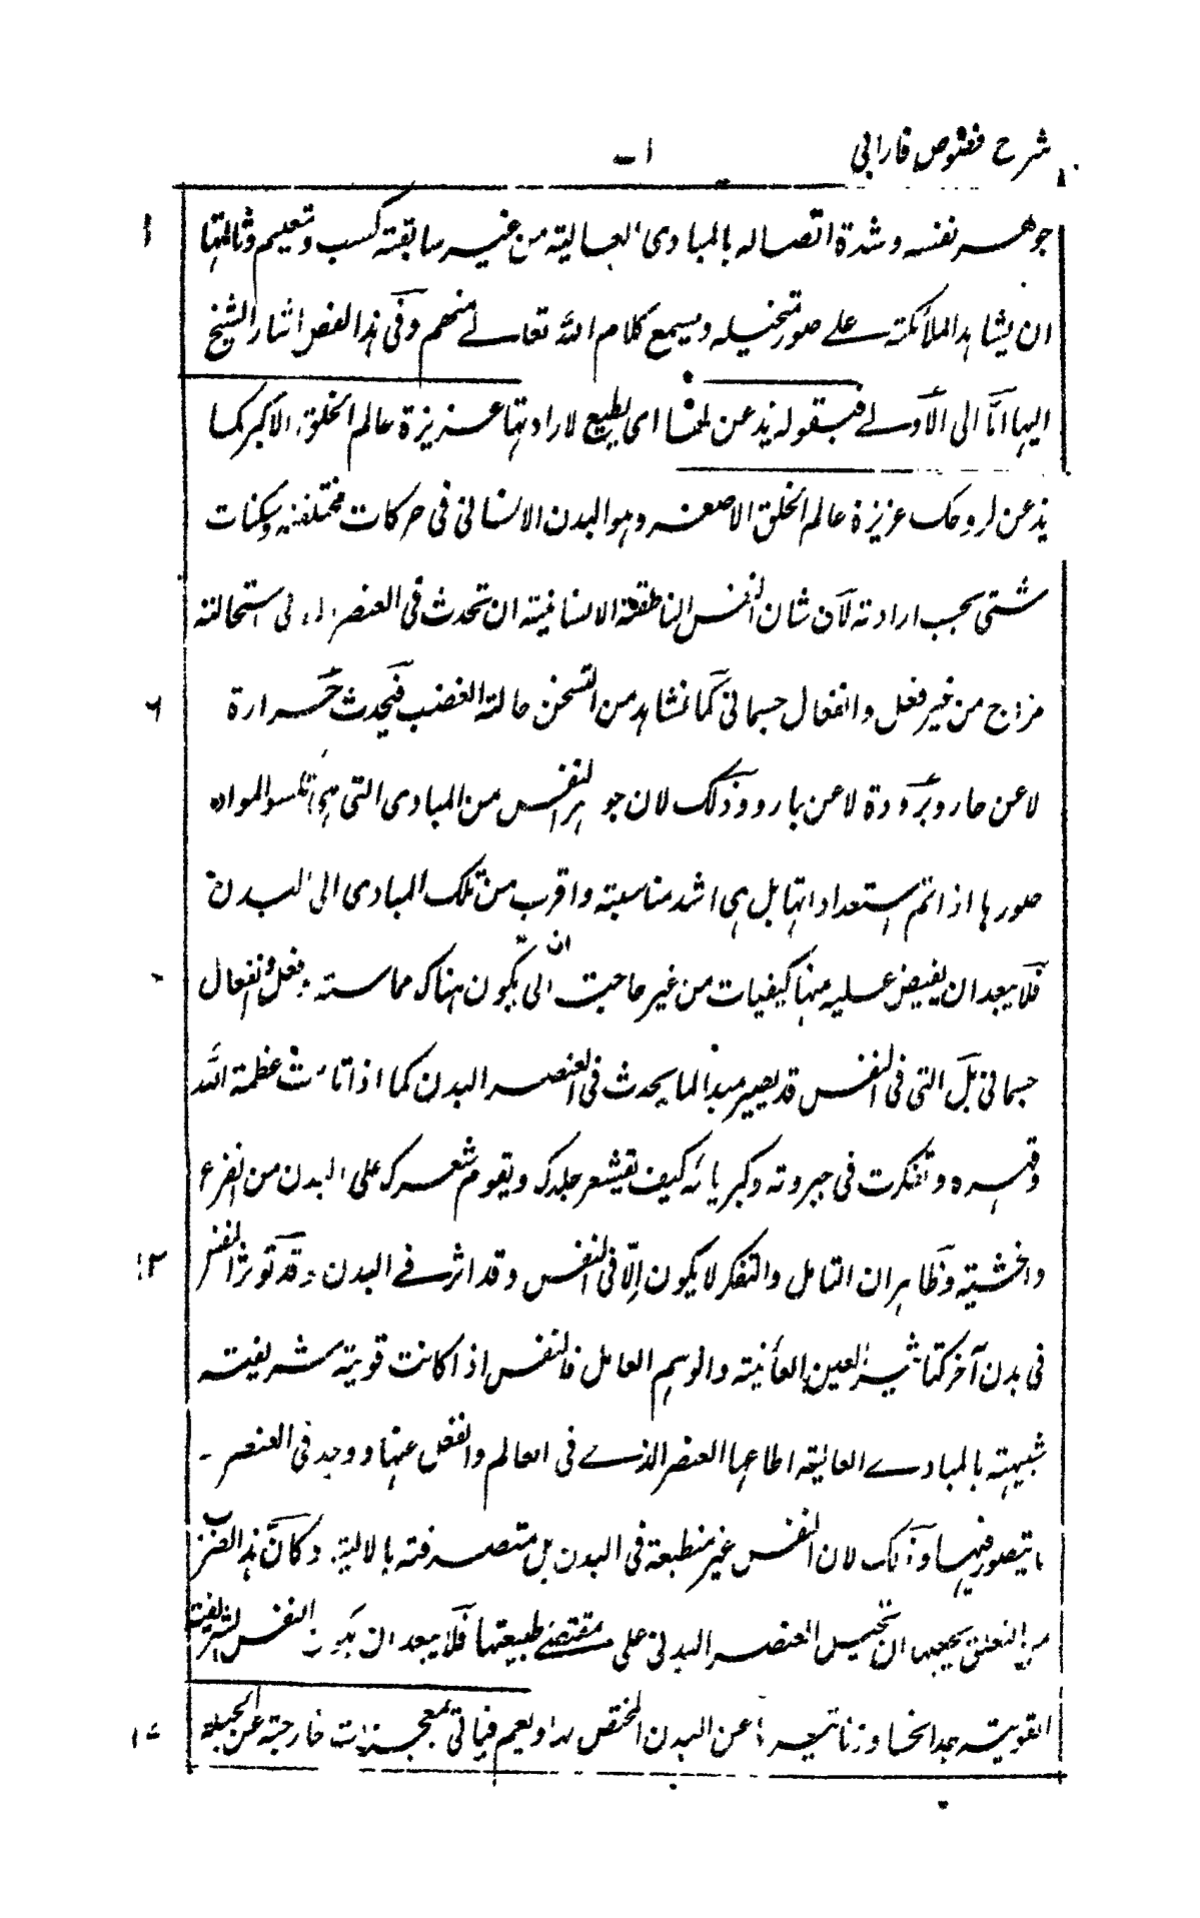 شرح فصوص فارابی
جوهر نفسه وشدة اتصاله بالمبادی العالية من غير سابقة كسب وتعليم وثالثتها
ان يشاهد الملائكة علے صور متخيله ويسمع كلام الله تعالے منهم وفی هذا الفص اشار الشيخ
اليها امّا الی الاولے فبقوله يذعن لها ای يطيع لارادتها غريزة عالم الخلق الاكبر كما
يذعن لروحك غريزة عالم الخلق الاصغر وهو البدن الانسانی فی حركات مختلفة وسكنات
شتی بحسب ارادته لان شان النفس الناطقة الانسانية ان تحدث فی العنصر استحالة
مزاج من غير فعل وانفعال جسمانی كما نشاهد من التسخن حالة الغضب فيحدث حرارة
لا عن حار وبرودة لا عن بارد وذلك لان جوهر النفس من المبادی التی هی تلبسو المواد
صورها اذا تم استعداداتها بل هی اشد مناسبة واقرب من تلك المبادی الی البدن
فلا يبعد ان يفيض عليه منها كيفيات من غير حاجت الی ان يكون هناك مماسته وفعل وانفعال
جسمانی بل التی فی النفس قد يصير مبدا لما يحدث فی العنصر البدن كما اذا تاملت عظمة الله
وقهره وتفكرت فی جبروته وكبريائه كيف يقشعر جلدك ويقوم شعرك علی البدن من الفزع
والخشية وظاهر ان التامل والتفكر لا يكون الّا فی النفس وقد اثر فے البدن وقد تؤثر النفس
فی بدن آخر كتاثير العين العائنية والوهم العامل فالنفس اذا كانت قوية شريفته
شبيهة بالمبادے العالية اطاعها العنصر الذے فی العالم وانفعل عنها ووجد فی العنصر ۔
ما يتصور فيها وذلك لان النفس غير منطبعة فی البدن بل متصرفة بالالية وكانّ هذا الضرب
من التعلق يجعلها ان تحيل العنصر البدنی علی مقتضے طبيعتها فلا يبعد ان يكون النفس الشريفة
القوية جدا تجاوز تاثيرها عن البدن المختص بها ويعم فياتی بمعجزات خارجة عن الجبلة